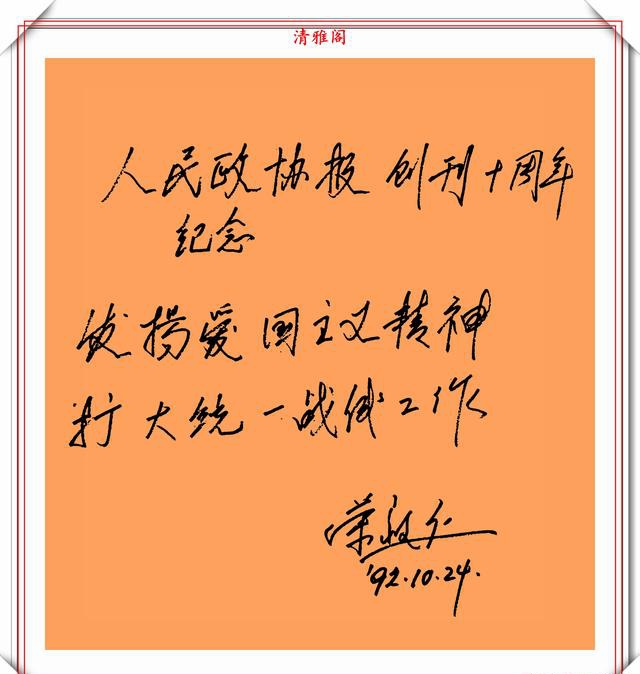 清雅阁
人民政协报 创刊十周年
纪念
发扬爱国主义精神
扩大统一战线工作
荣毅仁
'92.10.24.